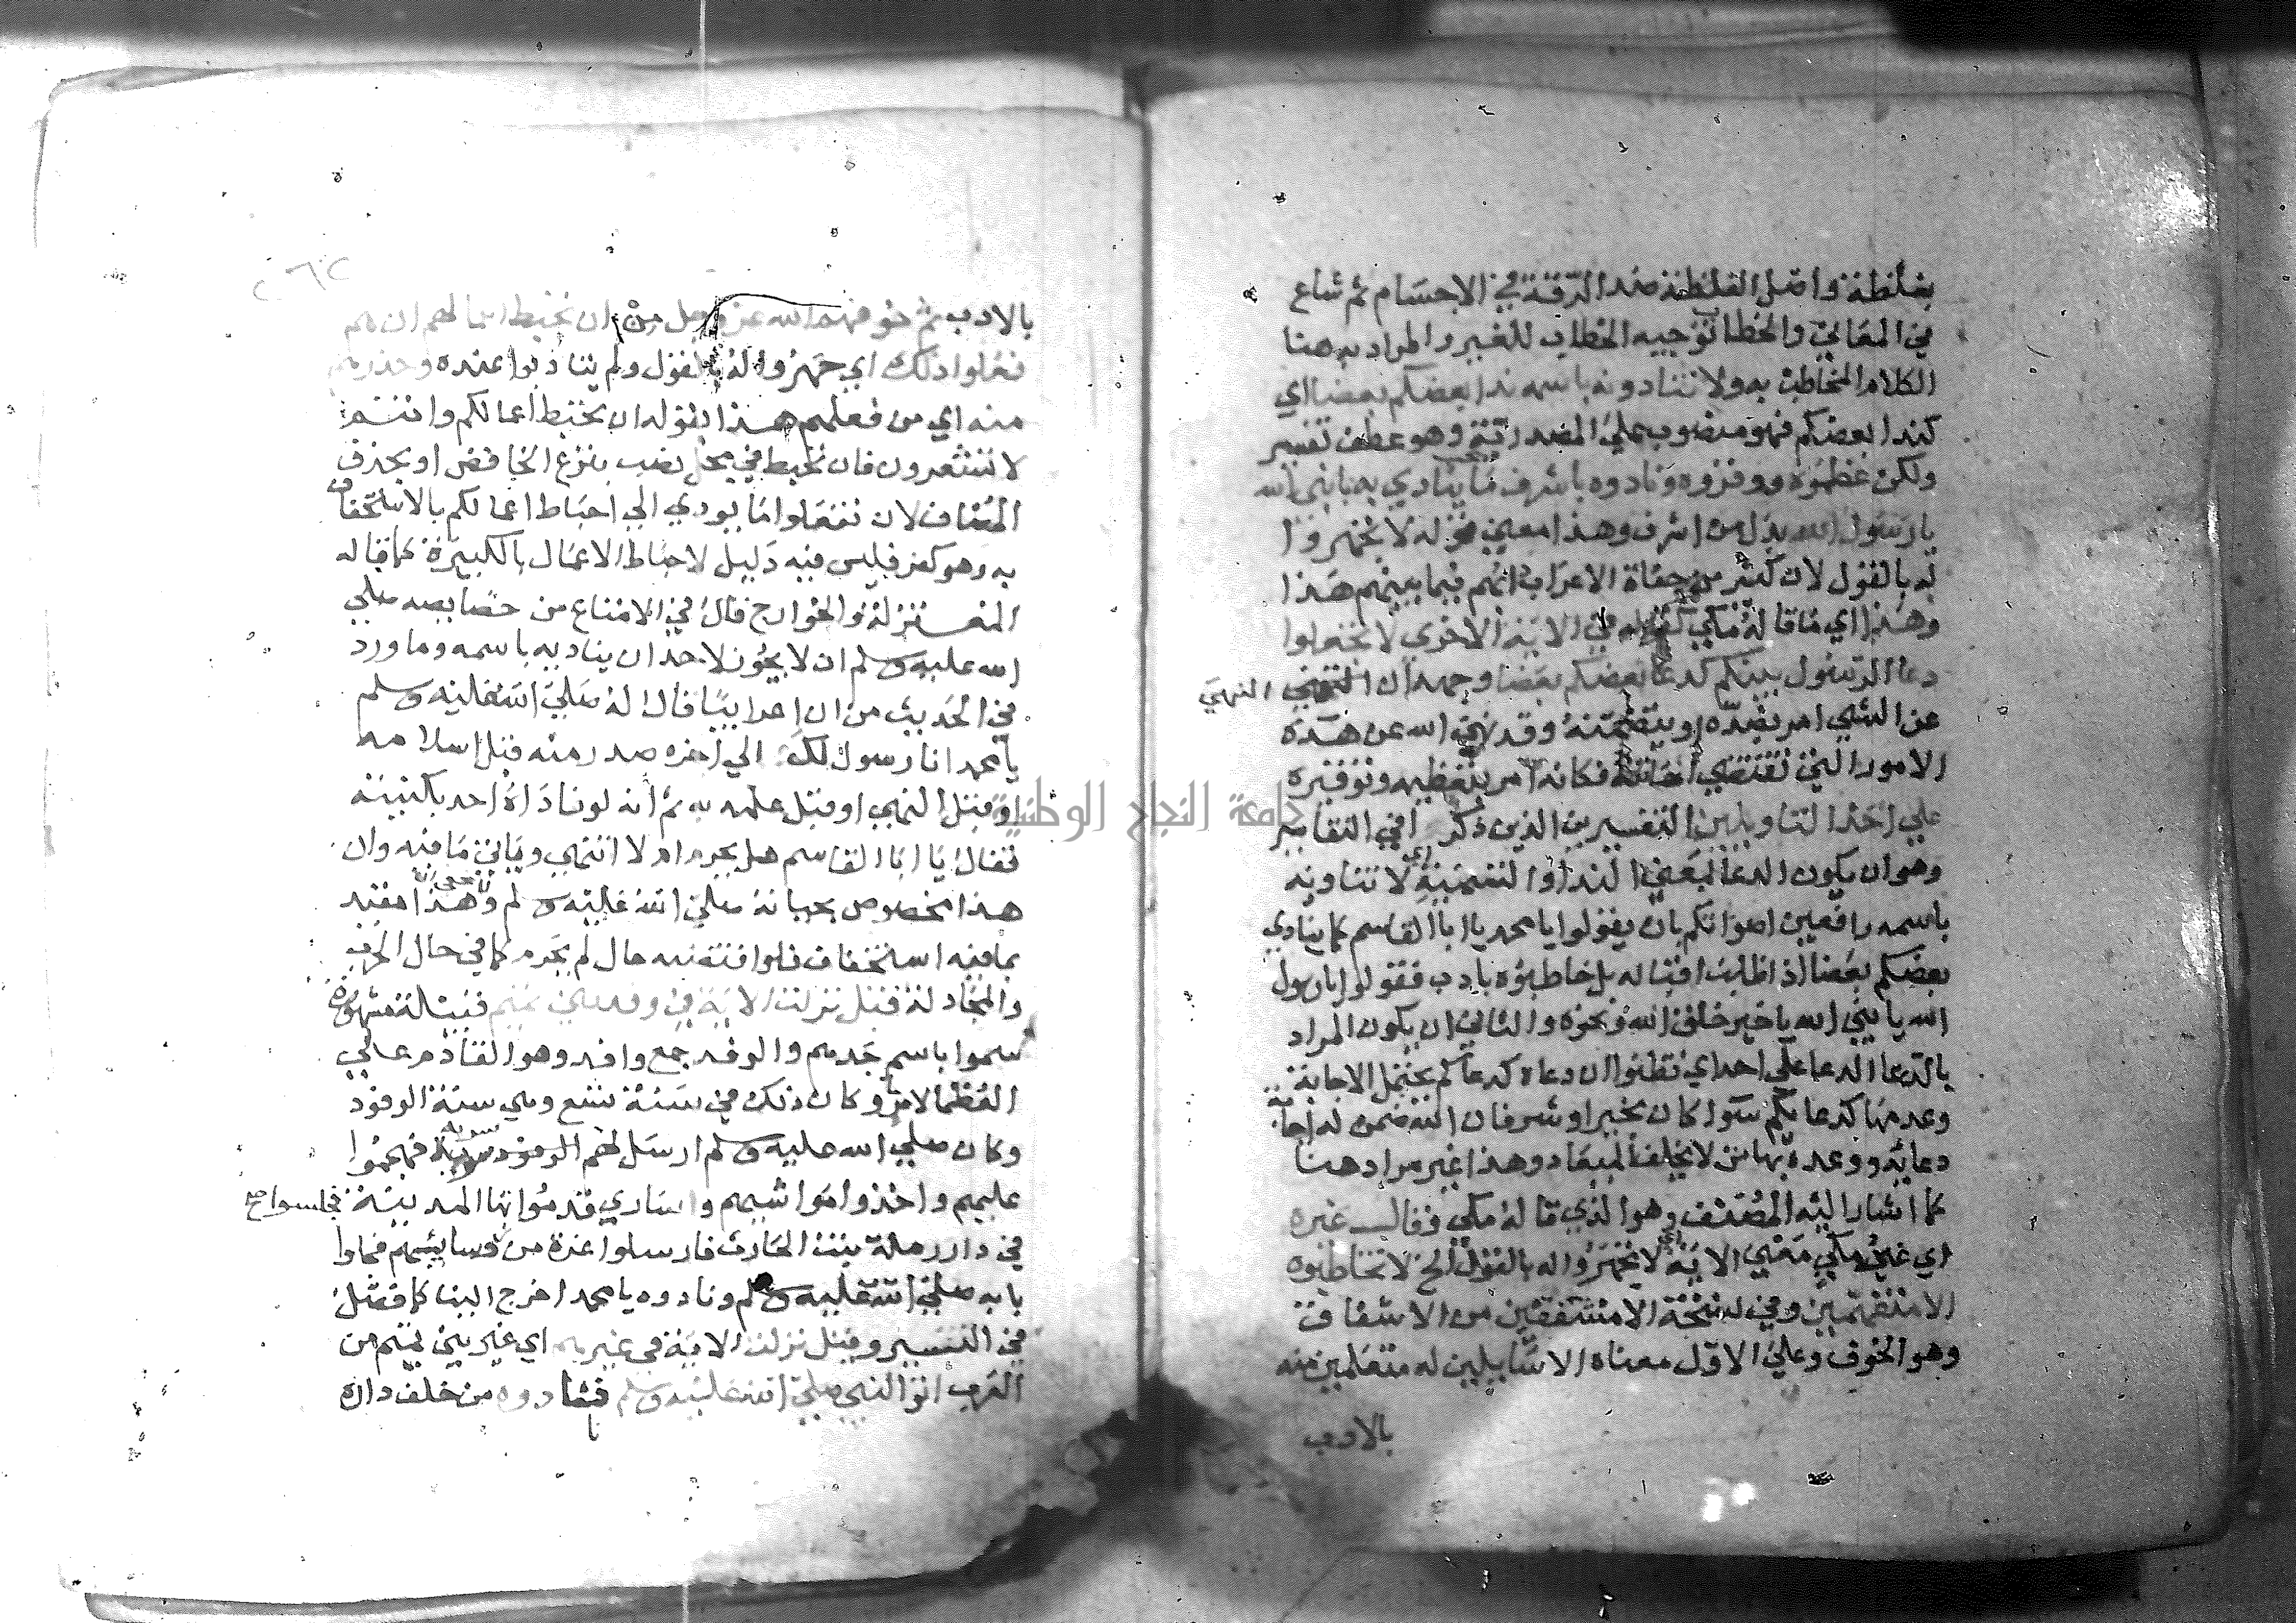 بغلظة واصل الغلظة ضد الرقة في الاجسام ثم شاع
في المعاني والخطاب توجيه الخطاب للغير والمراد به هنا
الكلام المخاطب به ولا تنادونه باسمه ندا بعضكم بعضا اي
كندا بعضكم فهو منصوب علي المصدرية وهو عطف تفسير
ولكن عظموه ووقروه ونادوه باشرف ما يحب ينادي به يا نبي الله
يا رسول الله بدل من اشرف وهذا معني قوله لا تجهروا
له بالقول لان كثير من جفاة الاعراب انهم فيما بينهم هذا
وهذا اي ما قاله مكي كقوله في الاية الاخري لا تجعلوا
دعا الرسول بينكم كدعا بعضكم بعضا وجهه ان النهي النهي
عن الشي امر بضده او يتضمنه وقد نهي الله عن هذه
الامور التي تقتضي اهانته فكانه امر بتعظيمه وتوقيره
علي احد التاويلين التفسيرين الذين ذكر في التفاسير
وهو ان يكون الدعا بمعني الندا والتسمية اي لا تنادونه
باسمه رافعين اصواتكم بان يقولوا يا محمد يا ابا القاسم كما ينادي
بعضكم بعضا اذا طلب اقباله بل خاطبوه بادب فقولوا يا رسول
الله يا نبي الله يا خير خلق الله ونحوه والثاني ان يكون المراد
بالدعا الدعا علي احد اي تظنوا ان دعاه كدعاكم يحتمل الاجابة
وعدمها كدعايكم سوا كان بخير او شر فان الله ضمن له اجابة
دعايه ووعده بها من لا يخلف الميعاد وهذا غير مراد هنا
كما اشار اليه المصنف وهو الذي قاله مكي فقال غيره
اي غير مكي معني الاية اي لا تجهروا له بالقول الخ لا تخاطبوه
الا مستفهمين وفي نسخة الا مشفقين من الاشفاق
وهو الخوف وعلي الاول معناه الا سايلين له متعلمين منه
بالادب
بالادب ثم خوفهم الله عز وجل من ان تحبط اعمالهم ان هم
فعلوا ذلك اي جهروا له بالقول ولم يتادبوا عنده وحذرهم
منه اي من فعلهم هذا بقوله ان تحبط اعمالكم وانتم
لا تشعرون فان تحبط في محل نصب بنزع الخافض او بحذف
المضاف لان تفعلوا ما يودي الي احباط اعمالكم بالاستخفاف
به وهو كفر فليس فيه دليل لاحباط الاعمال بالكبيرة كما قاله
المعتزلة والخوارج قال في الامتاع من خصايصه صلي
الله عليه وسلم ان لا يجوز لاحد ان يناديه باسمه وما ورد
في الحديث من ان اعرابيا قال له صلي الله عليه وسلم
يا محمد انا رسول لك الي اخره صدر منه قبل اسلامه
او قبل النهي او قبل علمه به ثم انه لو ناداه احد بكنيته
فقال يا ابا القاسم هل يحرم ام لا انتهي وياتي ما فيه وان
هذا مخصوص بحياته صلي الله عليه وسلم وهذا مقيد
بما فيه استخفاف فلو اقتضته حال لم يحرم كما في حال الحرب
والمجادلة قيل نزلت الاية في وفد بني تميم قبيلة مشهورة
سموا باسم جدهم والوفد جمع وافد وهو القادم علي
العظما لامر وكان ذلك في سنة تسع وهي سنة الوفود
وكان صلي الله عليه وسلم ارسل لهم سرية فهجموا
عليهم واخذوا مواشيهم واساري قدموا بها المدينة فجلسوا صح
في دار رملة بنت الحارث فارسلوا عدة من روسايهم فجاوا
بابه صلي الله عليه وسلم ونادوه يا محمد اخرج الينا كما فصل
في التفسير وقيل نزلت الاية في غيرهم اي غير بني تميم من
العرب اتوا النبي صلي الله عليه وسلم فنادوه من خلف داره
جامعة النجاح الوطنية